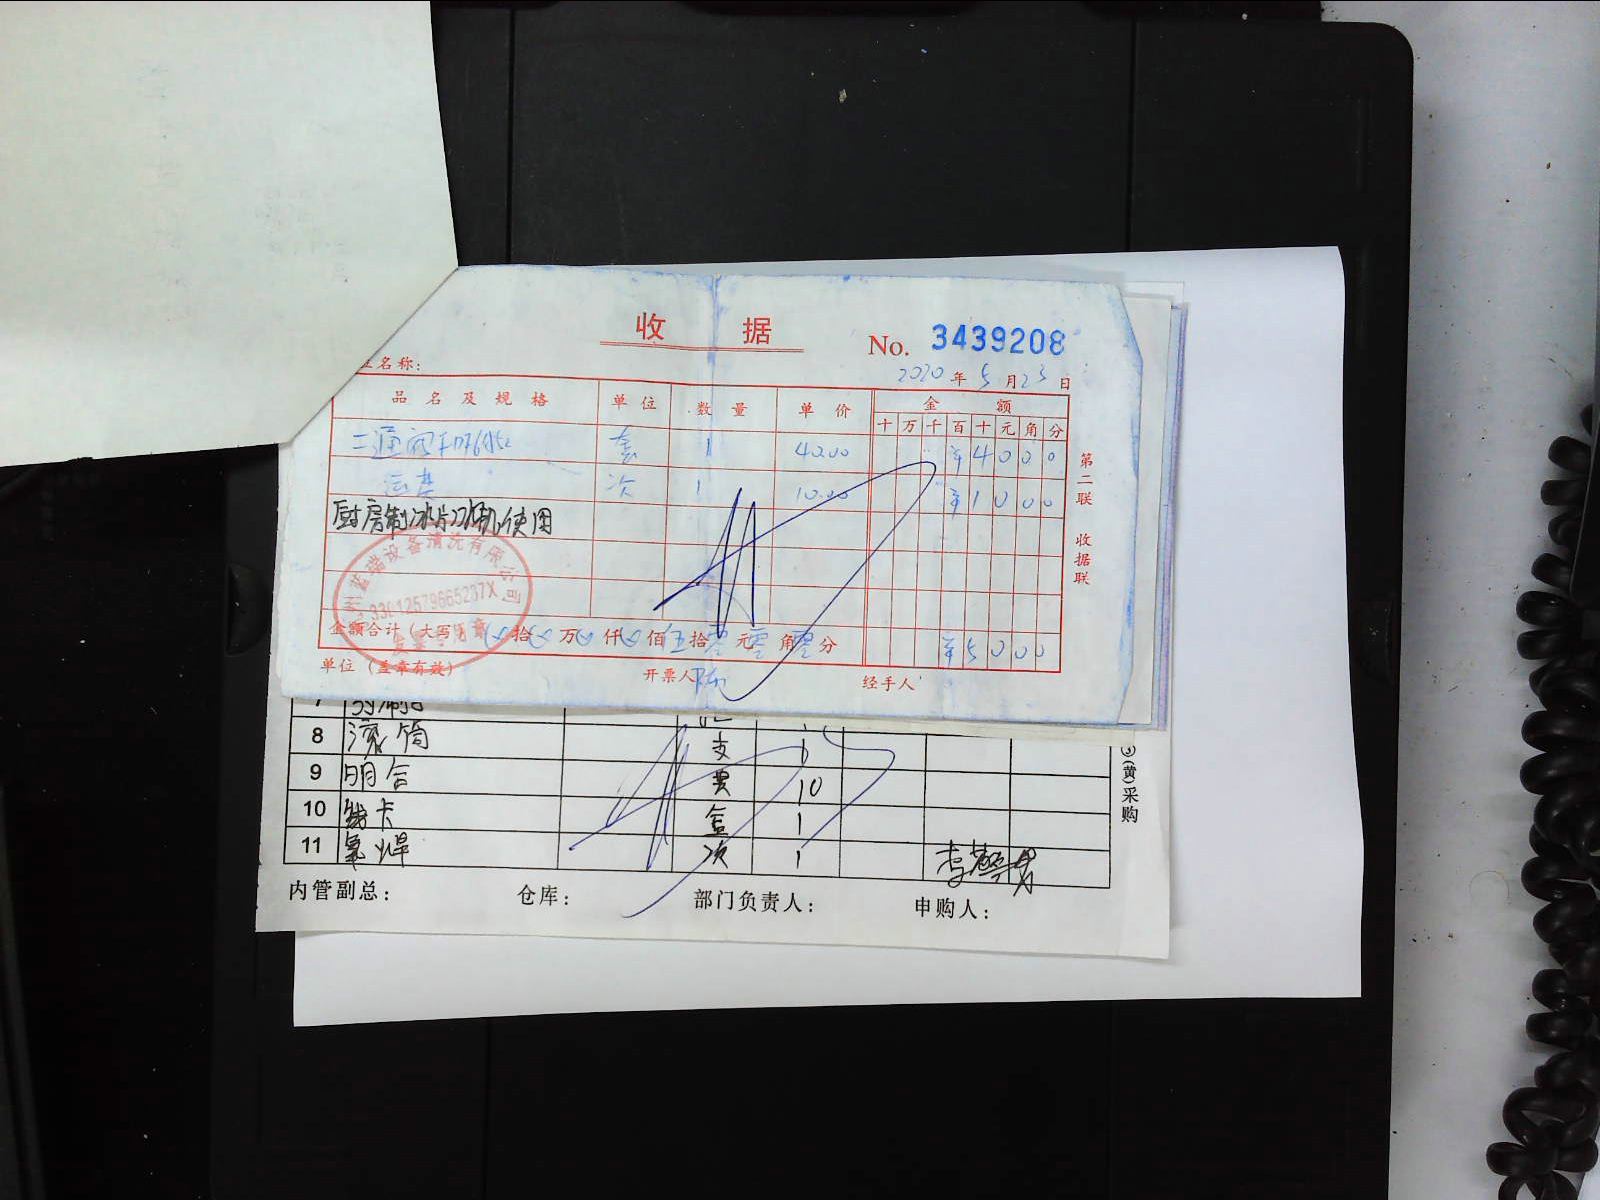 收 据
No. 3439208
名称:
2020 年 5 月 23 日
品 名 及 规 格 单 位 数 量 单 价 金 额
十 万 千 百 十 元 角 分
二通阀 套 1 40.00 ¥ 4 0 0 0
运费 次 1 10.00 ¥ 1 0 0 0
厨房制冰片冰机使用
蓝端设备清洗有限公司
33012579665237X
金额合计(大写) 拾 万 仟 佰 伍 拾 零 元 零 角 零 分 ¥ 5 0 0 0
单位 (盖章有效) 开票人 陈 经手人
第二联 收据联
7
8 滚筒 支
9 明合 10
10 卡 盒 1
11 氧焊 项 1
③(黄)采购
内管副总: 仓库: 部门负责人: 申购人: